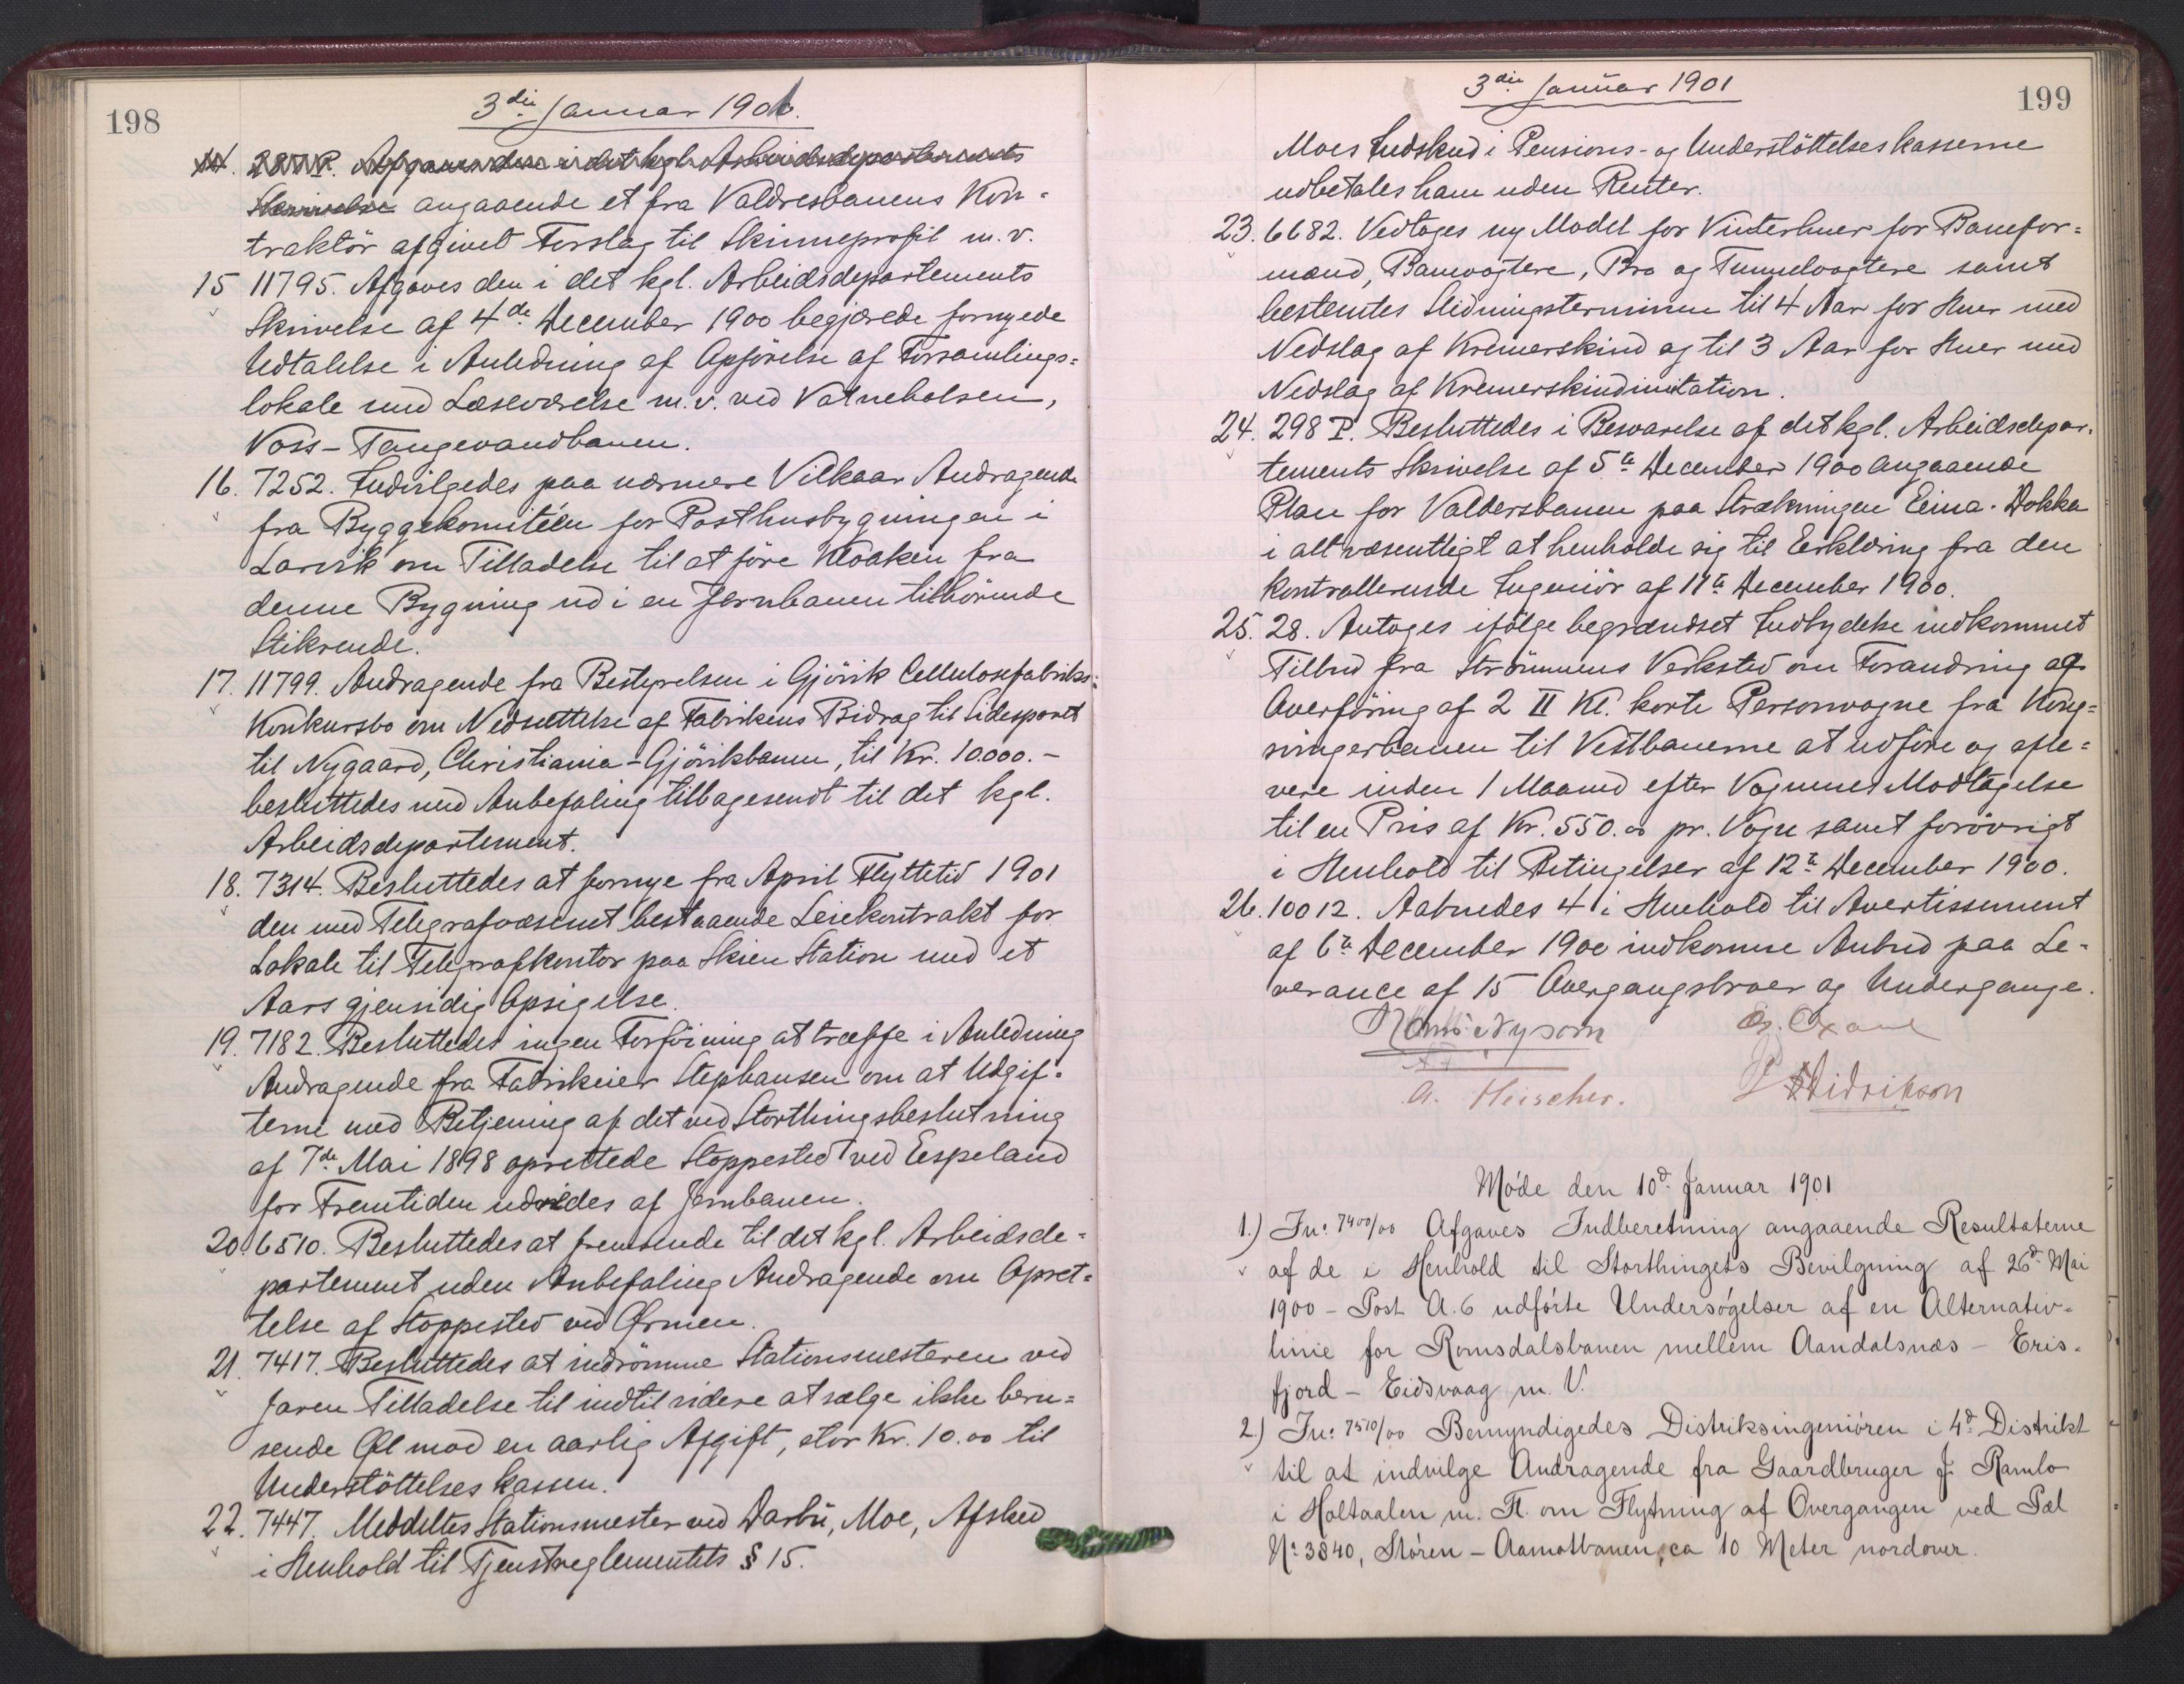 198
3die Januar 1901.
14. 287 P. Afgaves den i det kgl. Arbeidsdepartements
Skrivelse angaaende et fra Valdresbanens Kon-
traktör afgivet Forslag til Skinneprofil m.v.
15 11795. Afgaves den i det kgl. Arbeidsdepartements
Skrivelse af 4de December 1900 begjærede fornyede
Udtalelse i Anledning af Opförelse af Forsamlings=
lokale med Læseværelse m.v. ved Vatneholsen,
Voss-Taugevandbanen.
16. 7252. Indvilgedes paa nærmere Vilkaar Andragende
fra Byggekomitéen for Posthusbygningen i
Larvik om Tilladelse til at före Kloaken fra
denne Bygning ud i en Jernbanen tilhörende
Stikrende.
17. 11799. Andragende fra Bestyrelsen i Gjövik Cellulosefabriks=
Konkursbo om Nedsættelse af Fabrikens Bidrag til Sidesporet
til Nygaard, Christiania-Gjövikbanen, til Kr. 10.000.-
besluttedes med Anbefaling tilbagesendt til det kgl.
Arbeidsdepartement.
18. 7314. Besluttedes at fornye fra April Flyttetid 1901
den med Telegrafvæsenet bestaaende Leiekontrakt for
Lokale til Telegrafkontor paa Skien Station med et
Aars gjensidig Opsigelse.
19. 7182. Besluttedes ingen Forföining at træffe i Anledning
Andragende fra Fabrikeier Stephansen om at Udgif=
terne med Betjening af det ved Storthingsbeslutning
af 7de Mai 1898 oprettede Stoppested ved Espeland
for Fremtiden udredes af Jernbanen.
20. 6510. Besluttedes at fremsende til det kgl. Arbeidsde=
partement uden Anbefaling Andragende om Opret=
telse af Stoppested ved Ørmen.
21. 7417. Besluttedes at indrömme Stationsmesteren ved
Jaren Tilladelse til indtil videre at sælge ikke beru=
sende Øl mod en aarlig Afgift, stor Kr. 10.00 til
Understöttelseskassen.
22. 7447. Meddeltes Stationsmester ved Darbu, Moe, Afsked
i Henhold til Tjenstreglementets § 15.
3die Januar 1901
199
Moes Indskud i Pensions- og Understöttelseskasserne
udbetales ham uden Renter.
23. 6682. Vedtoges ny Model for Vinterhuer for Banefor=
mænd, Banevogtere, Bro og Tunnelvogtere samt
bestemtes Slidningsterminen til 4 Aar for Huer med
Nedslag af Kremerskind og til 3 Aar for Huer med
Nedslag af Kremerskindimitation.
24. 298 P. Besluttedes i Besvarelse af det kgl. Arbeidsdepar-
tements Skrivelse af 5te December 1900 angaaende
Plan for Valdersbanen paa Strækningen Eina-Dokka
i alt væsentligt at henholde sig til Erklæring fra den
kontrollerende Ingeniör af 11te December 1900.
25. 28. Antoges ifölge begrændset Indbydelse indkommet
Tilbud fra Strömmens Verksted om Forandring og
Overföring af 2 II Kl. korte Personvogne fra Kong=
svingerbanen til Vestbanerne at udföre og afle=
vere inden 1 Maaned efter Vognenes Modtagelse
til en Pris af Kr. 550.00 pr. Vogn samt forövrigt
i Henhold til Betingelser af 12te December 1900.
26. 10012. Aabnedes 4 i Henhold til Avertissement
af 6te December 1900 indkomne Anbud paa Le-
verance af 15 Overgangsbroer og Undergange.
Hans Nysom
A. Fleischer.
P Hidrikson
Møde den 10d Januar 1901
1.) Jn: 7400/00 Afgaves Indberetning angaaende Resultaterne
af de i Henhold til Storthingets Bevilgning af 26d Mai
1900 - Post A.6 udførte Undersøgelser af en Alternativ-
linie for Romsdalsbanen mellem Aandalsnæs - Eris-
fjord - Eidsvaag m.V.
2.) Jn: 7510/00 Bemyndigedes Distriksingeniøren i 4d Distrikt
til at indvilge Andragende fra Gaardbruger J. Ramlo
i Holtaalen m. Fl. om Flytning af Overgangen ved Pæl
No 3840, Støren - Aamotbanen, ca 10 Meter nordover.